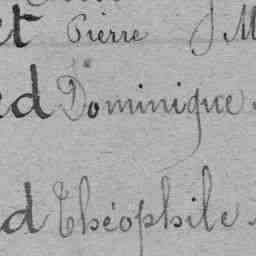 et Pierre J M
ed Dominique
d Théophile